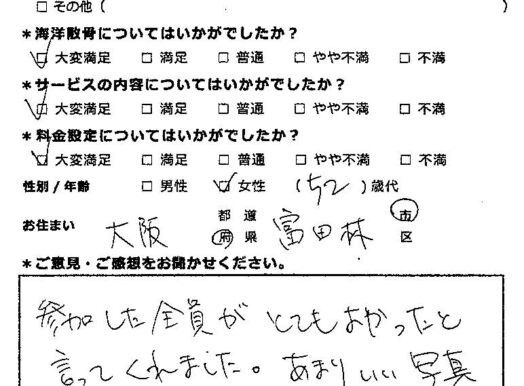 □ その他 ( )
*海洋散骨についてはいかがでしたか?
□ 大変満足 □ 満足 □ 普通 □ やや不満 □ 不満
*サービスの内容についてはいかがでしたか?
□ 大変満足 □ 満足 □ 普通 □ やや不満 □ 不満
*料金設定についてはいかがでしたか?
□ 大変満足 □ 満足 □ 普通 □ やや不満 □ 不満
性別/年齢 □ 男性 □ 女性 (52)歳代
お住まい 大阪 都 道 府 県 富田林 市 区
*ご意見・ご感想をお聞かせください。
参加した全員が とてもよかったと
言ってくれました。あまりいい写真